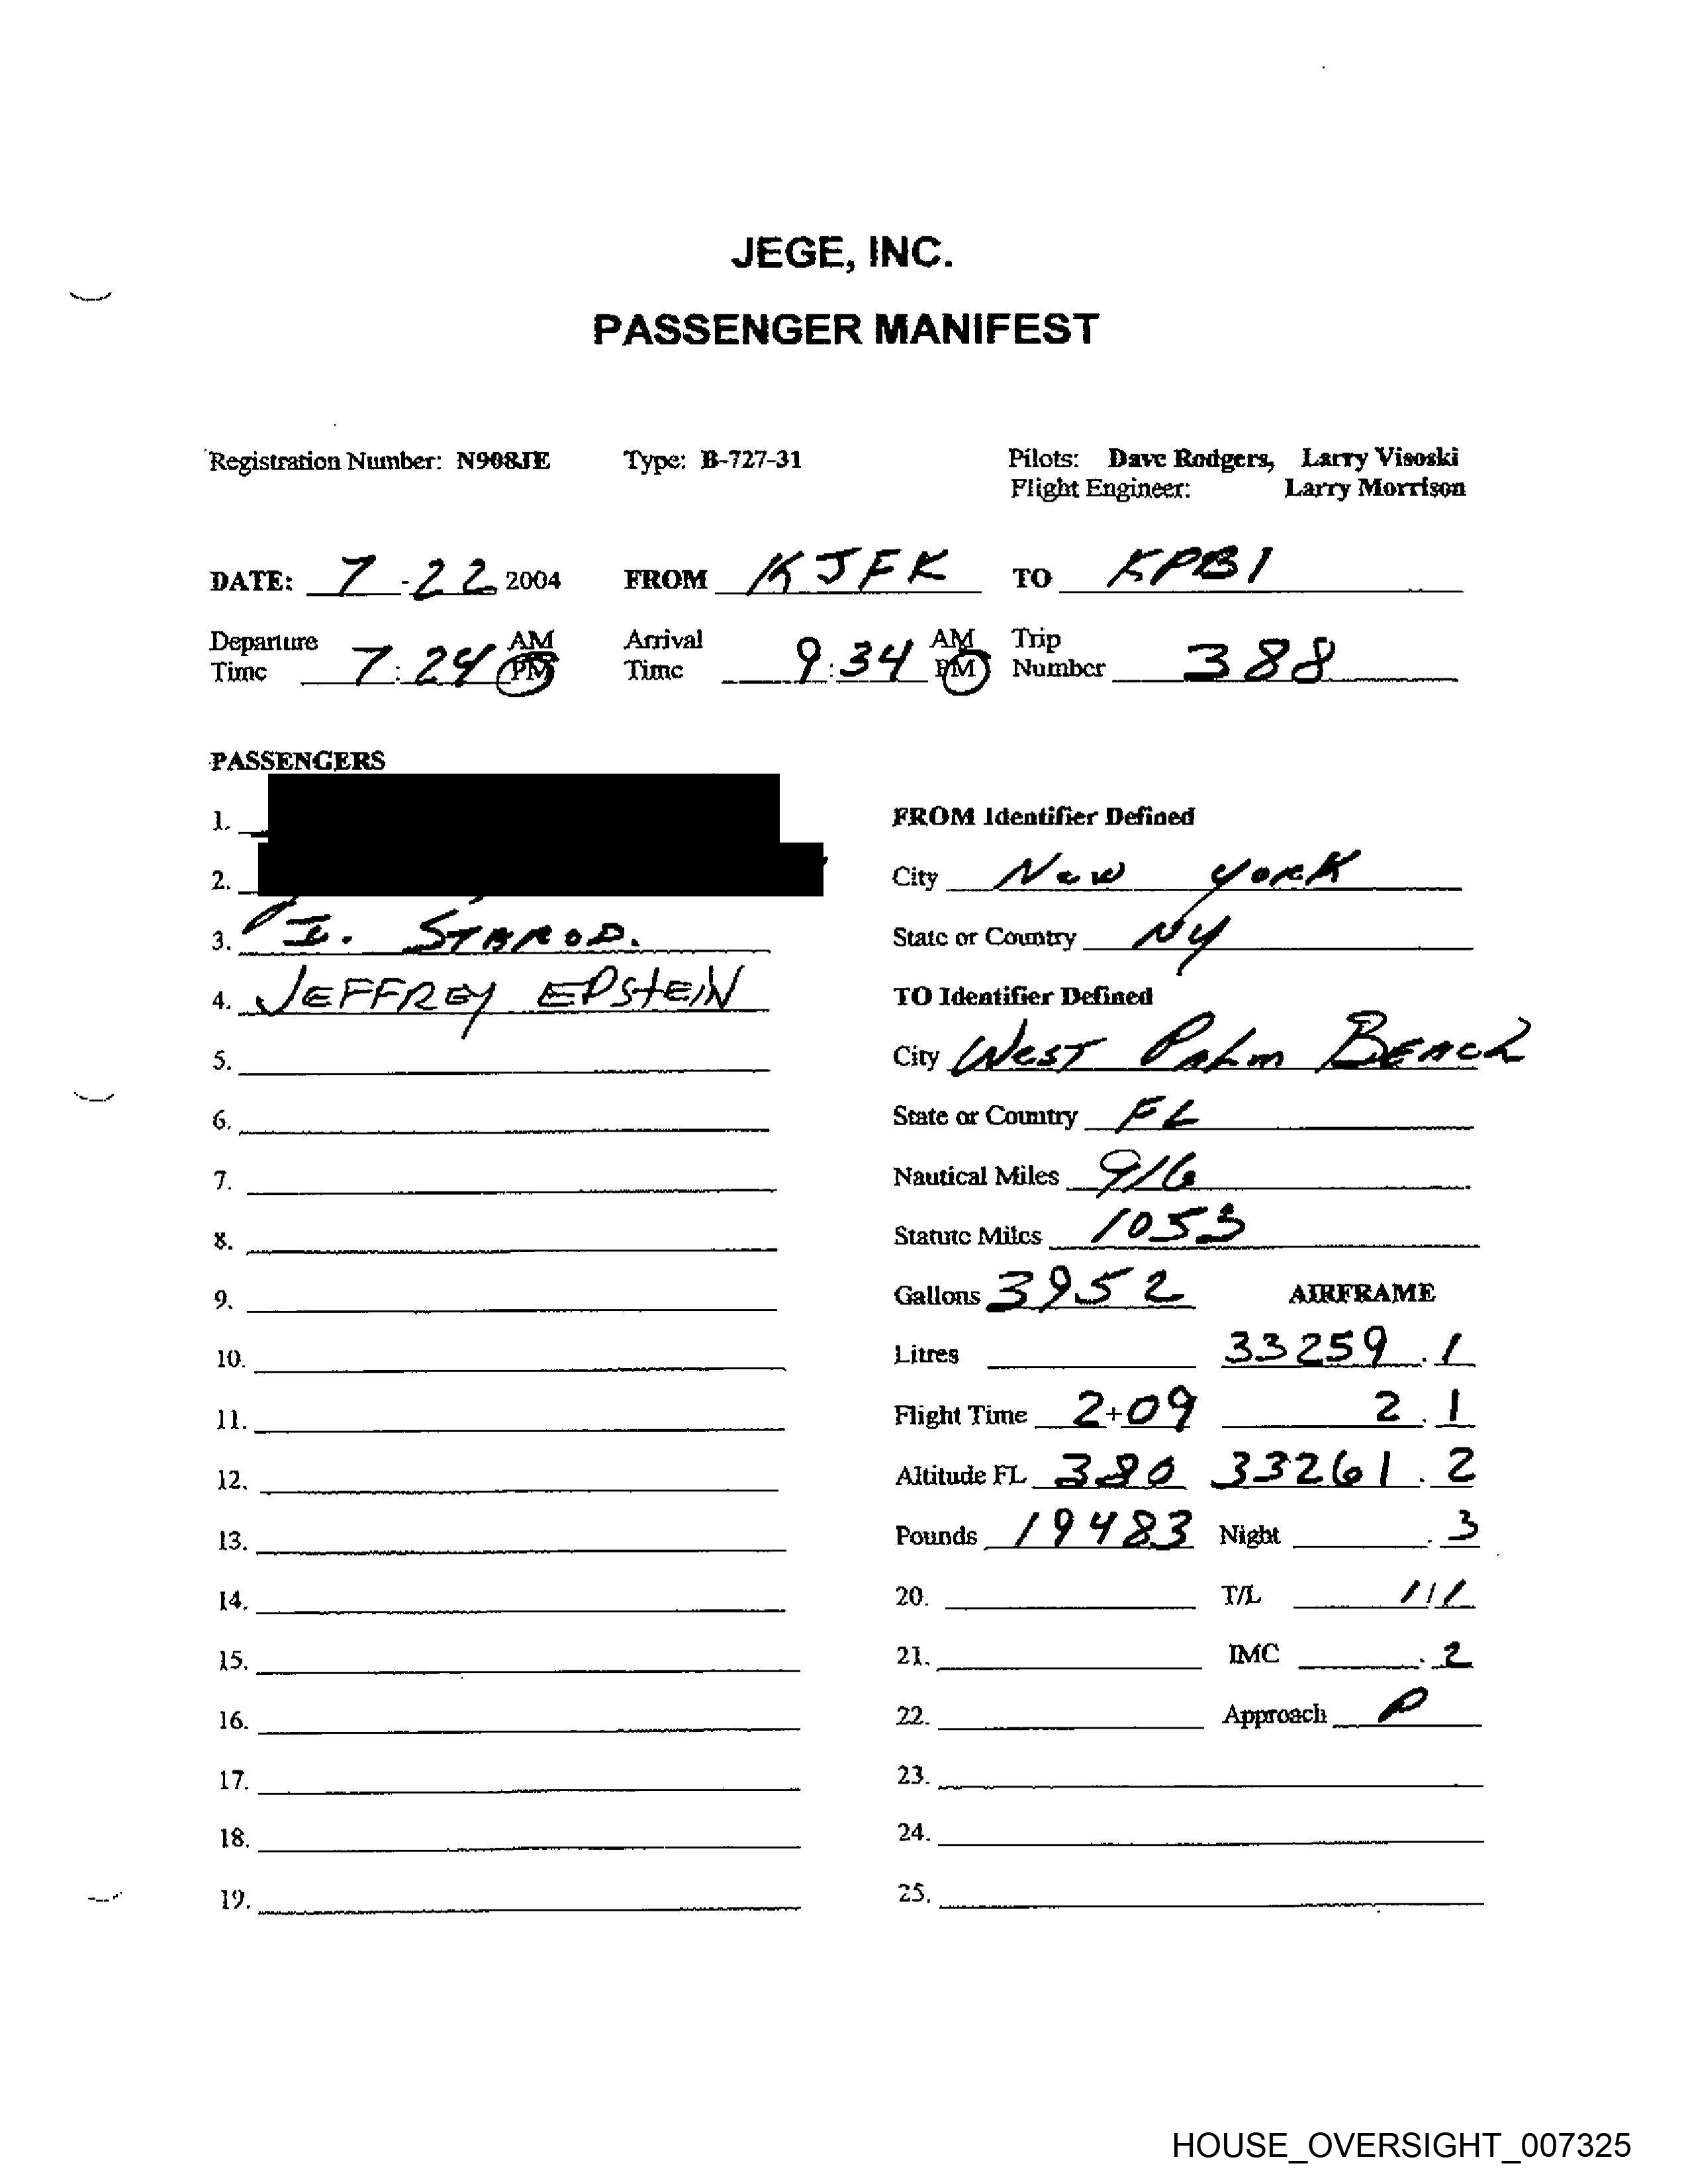 JEGE, INC.
PASSENGER MANIFEST
Registration Number: N908JE Type: B-727-31 Pilots: Dave Rodgers, Larry Visoski
Flight Engineer: Larry Morrison
DATE: 7-22 2004 FROM KJFK TO KPBI
Departure Time 7:24 AM PM Arrival Time 9:34 AM PM Trip Number 388
PASSENGERS
1.
FROM Identifier Defined
2.
City New York
3. I. STAROD.
State or Country NY
4. JEFFREY EPSTEIN
TO Identifier Defined
5.
City West Palm Beach
6.
State or Country FL
7.
Nautical Miles 916
8.
Statute Miles 1053
9.
Gallons 3952 AIRFRAME
10.
Litres 33259.1
11.
Flight Time 2+09 2.1
12.
Altitude FL 380 33261.2
13.
Pounds 19483 Night .3
14.
20. T/L 1/1
15.
21. IMC .2
16.
22. Approach P
17.
23.
18.
24.
19.
25.
HOUSE_OVERSIGHT_007325